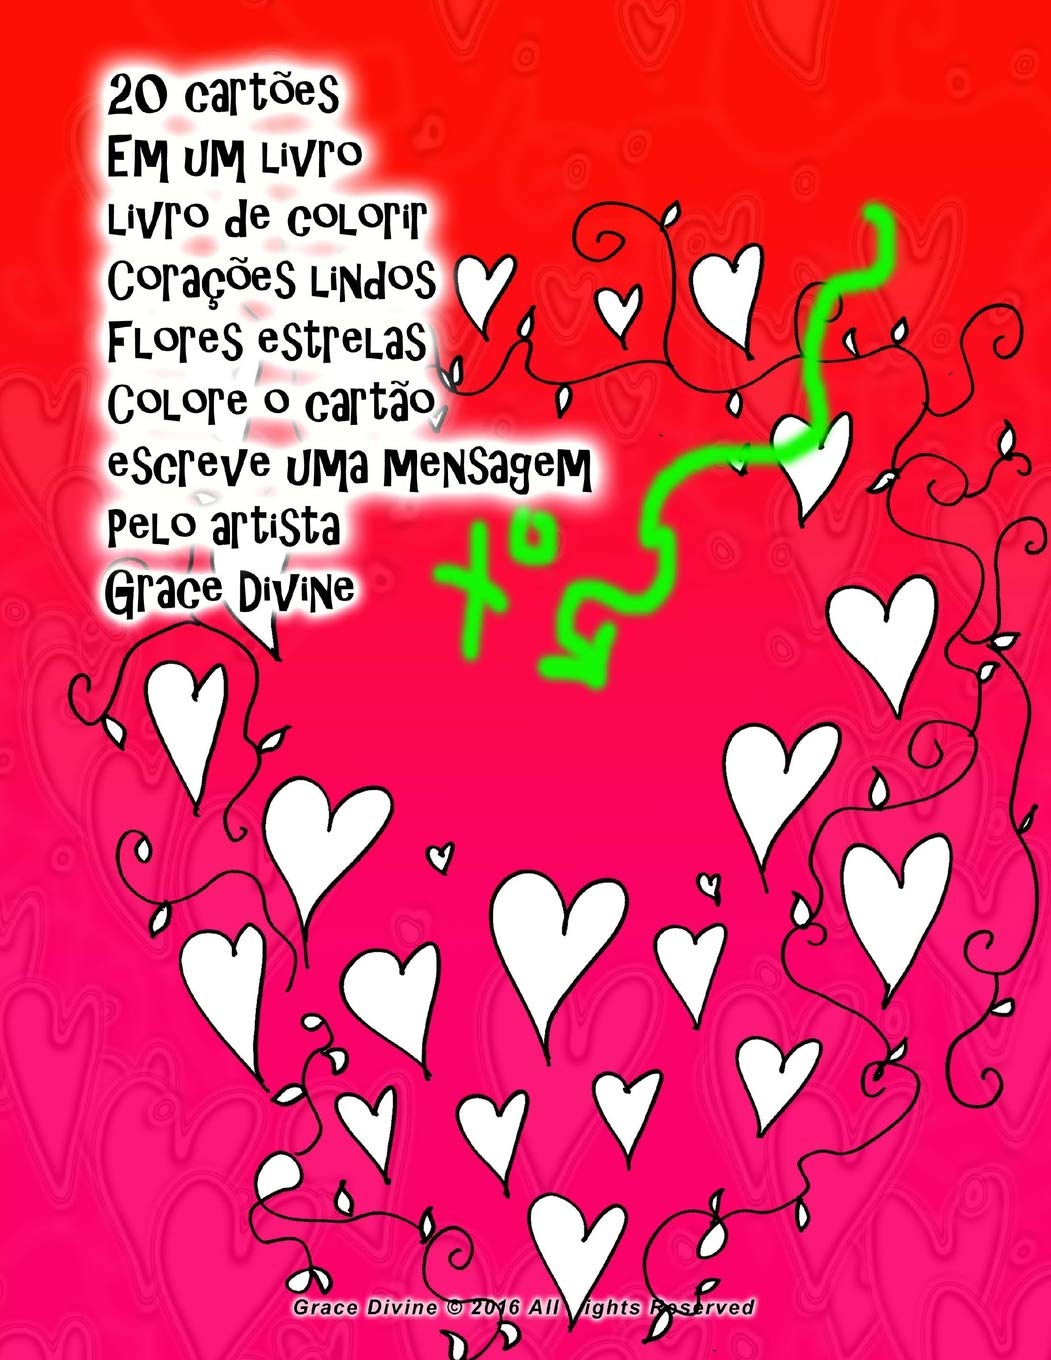 20 cartões
Em um livro
livro de colorir
Corações lindos
Flores estrelas
Colore o cartão
escreve uma mensagem
pelo artista
Grace Divine
xo
Grace Divine © 2016 All Rights Reserved